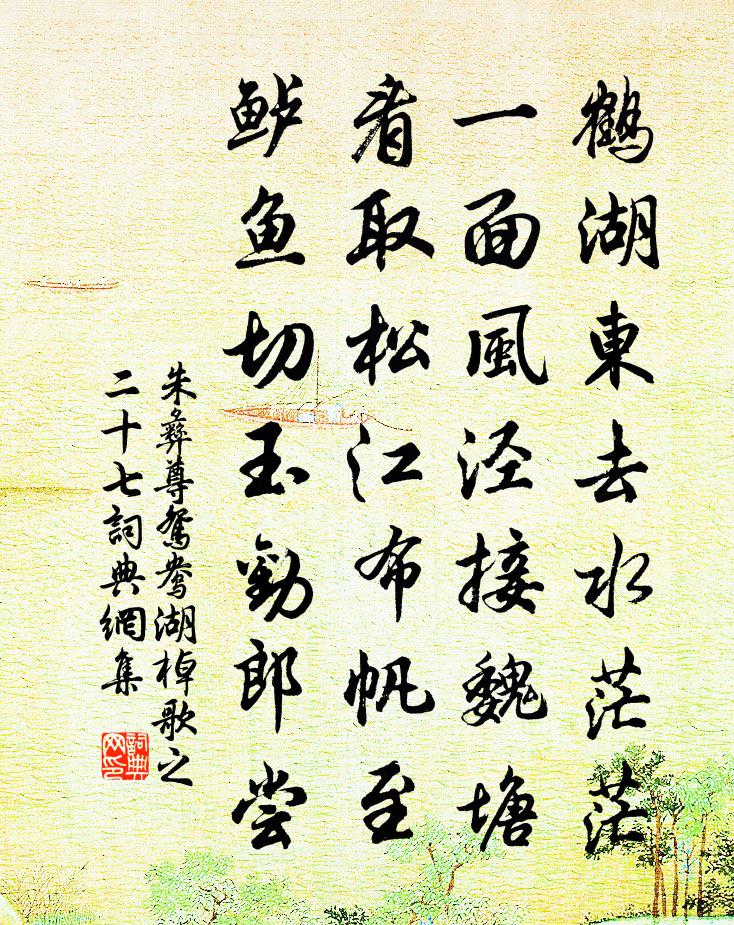 鹤湖東去水茫茫
一面風泾接魏塘
看取松江布帆至
鲈鱼切玉勸郎尝
朱彝尊鸳鸯湖棹歌之
二十七詞典網集
詞典网印